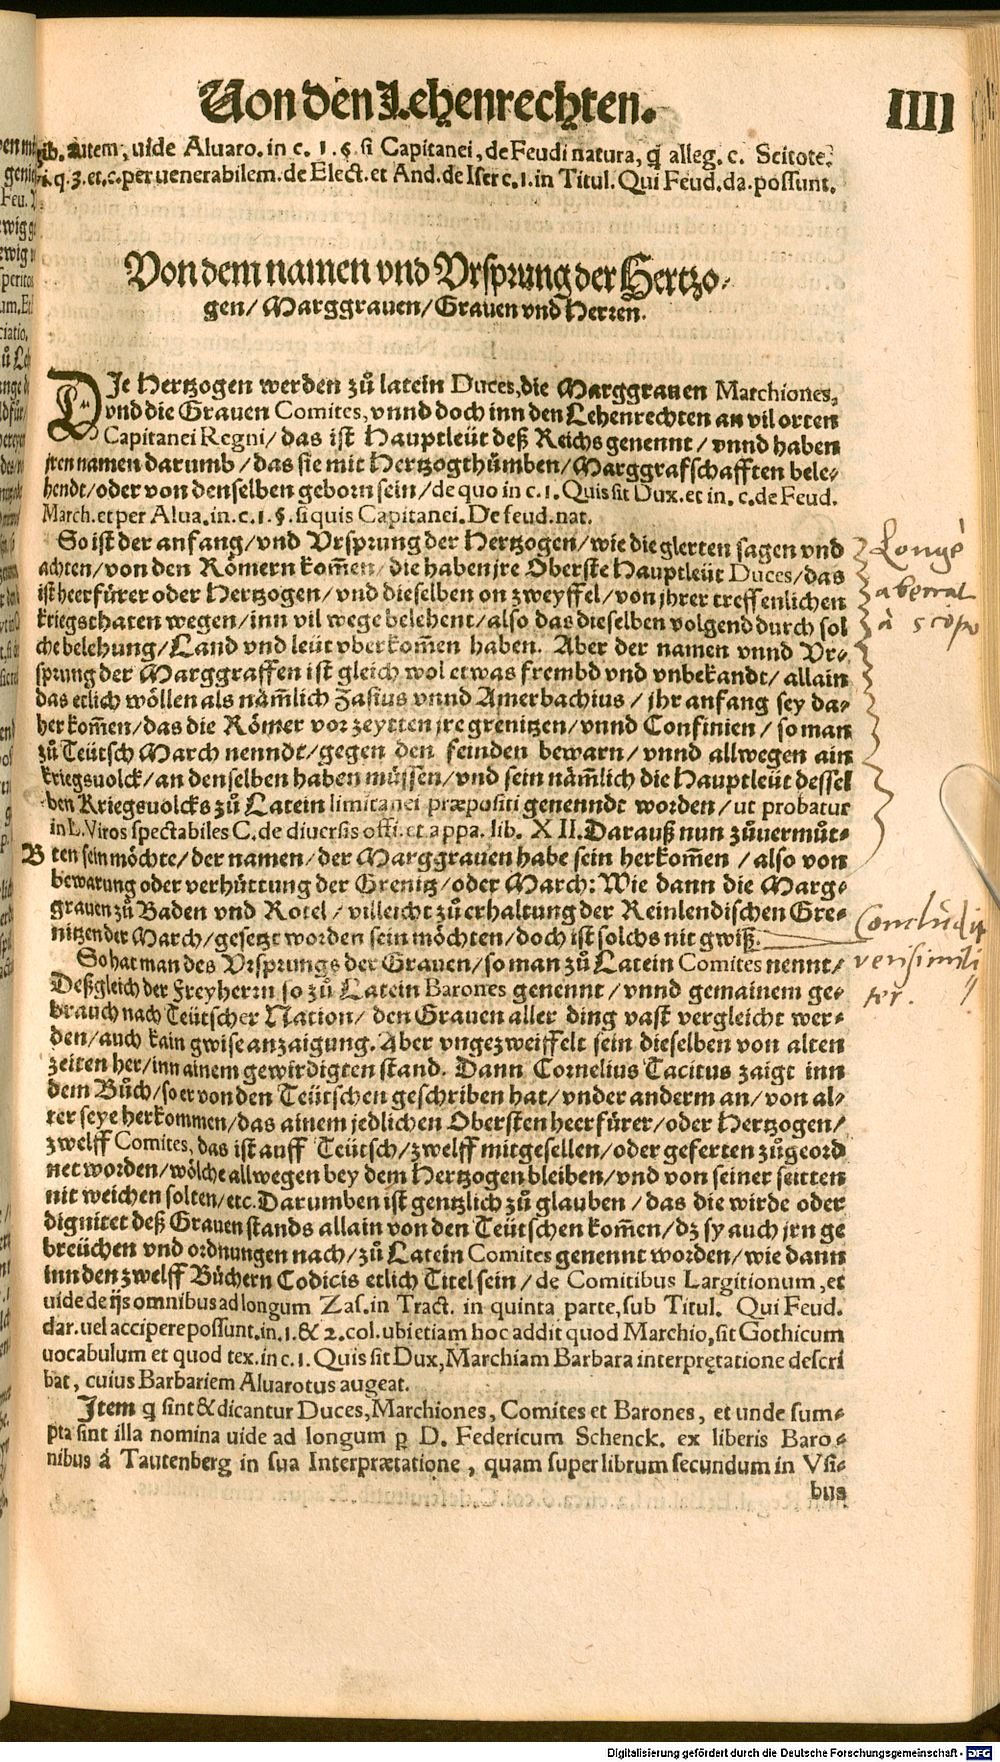 Von den Lehenrechten.
IIII
gib. autem, uide Aluaro. in c. 1. §. si Capitanei, de Feudi natura, q̃ alleg. c. Scitote.
vi. q. 3. et. c. per uenerabilem. de Elect. et And. de Iser c. 1. in Titul. Qui Feud. da. possunt.
Von dem namen vnd Vrsprung der Hertzo-
gen/ Marggrauen/ Grauen vnd Herren.
DJe Hertzogen werden zů latein Duces, die Marggrauen Marchiones,
vnd die Grauen Comites, vnnd doch inn den Lehenrechten an vil orten
Capitanei Regni/ das ist Hauptleüt deß Reichs genennt/ vnnd haben
jren namen darumb/ das sie mit Hertzogthůmben/ Marggrafschafften bele-
hendt/ oder von denselben geborn sein/ de quo in c. 1. Quis sit Dux. et in. c. de Feud.
March. et per Alua. in. c. 1. §. si quis Capitanei. De feud. nat.
So ist der anfang/ vnd Vrsprung der Hertzogen/ wie die glerten sagen vnd
achten/ von den Römern kom̃en/ die haben jre Oberste Hauptleüt Duces/ das
ist heerfürer oder Hertzogen/ vnd dieselben on zweyffel/ von jhrer treffenlichen
kriegsthaten wegen/ inn vil wege belehent/ also das dieselben volgend durch sol
che belehung/ Land vnd leüt vberkom̃en haben. Aber der namen vnnd Vr-
sprung der Marggraffen ist gleich wol etwas frembd vnd vnbekandt/ allain
das etlich wöllen als näm̃lich Zasius vnnd Amerbachius/ jhr anfang sey da-
her kom̃en/ das die Römer vor zeytten jre grenitzen/ vnnd Confinien/ so man
zů Teütsch March nenndt/ gegen den feinden bewarn/ vnnd allwegen ain
kriegsuolck/ an denselben haben müssen/ vnd sein näm̃lich die Hauptleüt dessel
ben Kriegsuolcks zů Latein limitanei præpositi genenndt worden/ ut probatur
in L. Viros spectabiles C. de diuersis offi. et appa. lib. XII. Darauß nun zůuermůt-
B ten sein möchte/ der namen/ der Marggrauen habe sein herkom̃en/ also von
bewarung oder verhüttung der Grenitz/ oder March: Wie dann die Marg-
grauen zů Baden vnd Rotel/ villeicht zů erhaltung der Reinlendischen Gre-
nitzen der March/ gesetzt worden sein möchten/ doch ist solchs nit gwiß.
So hat man des Vrsprungs der Grauen/ so man zů Latein Comites nennt/
Deßgleich der Freyherrn so zů Latein Barones genennt/ vnnd gemainem ge-
brauch nach Teütscher Nation/ den Grauen aller ding vast vergleicht wer-
den/ auch kain gwise anzaigung. Aber vngezweiffelt sein dieselben von alten
zeiten her/ inn ainem gewirdigten stand. Dann Cornelius Tacitus zaigt inn
dem Bůch/ so er von den Teütschen geschriben hat/ vnder anderm an/ von al-
ter seye herkommen/ das ainem jedlichen Obersten heerfürer/ oder Hertzogen/
zwelff Comites, das ist auff Teütsch/ zwelff mitgesellen/ oder geferten zůgeord
net worden/ wölche allwegen bey dem Hertzogen bleiben/ vnd von seiner seitten
nit weichen solten/ etc. Darumben ist gentzlich zů glauben/ das die wirde oder
dignitet deß Grauen stands allain von den Teütschen kom̃en/ dz sy auch jrn ge
breüchen vnd ordnungen nach/ zů Latein Comites genennt worden/ wie dann
inn den zwelff Büchern Codicis etlich Titel sein/ de Comitibus Largitionum, et
uide de ijs omnibus ad longum Zas. in Tract. in quinta parte, sub Titul. Qui Feud.
dar. uel accipere possunt. in. 1. & 2. col. ubi etiam hoc addit quod Marchio, sit Gothicum
uocabulum et quod tex. in c. 1. Quis sit Dux, Marchiam Barbara interpretatione descri
bat, cuius Barbariem Aluarotus augeat.
Jtem q̃ sint & dicantur Duces, Marchiones, Comites et Barones, et unde sum-
pta sint illa nomina uide ad longum ꝑ D. Federicum Schenck. ex liberis Baro-
nibus á Tautenberg in sua Interprætatione, quam super librum secundum in Vsi-
bus
Longè
aberrat
à scopo
Concludit
verisimili
ter.
Digitalisierung gefördert durch die Deutsche Forschungsgemeinschaft - DFG